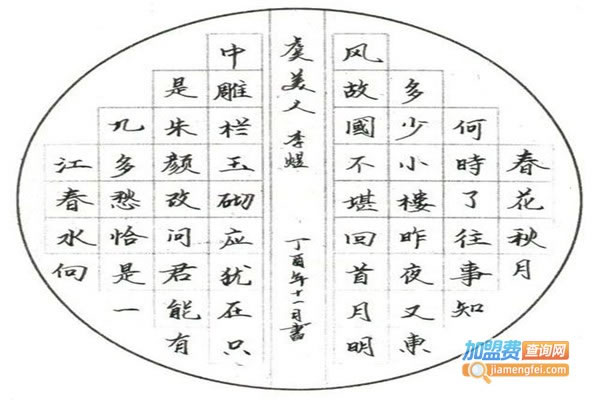 春花秋月
何時了往事知
多少小樓昨夜又東
风故國不堪回首月明
虞美人 李煜 丁酉年十一月書
中雕栏玉砌应犹在只
是朱颜改问君能有
几多愁恰是一
江春水向
加盟费查询网
jiamengfei.com